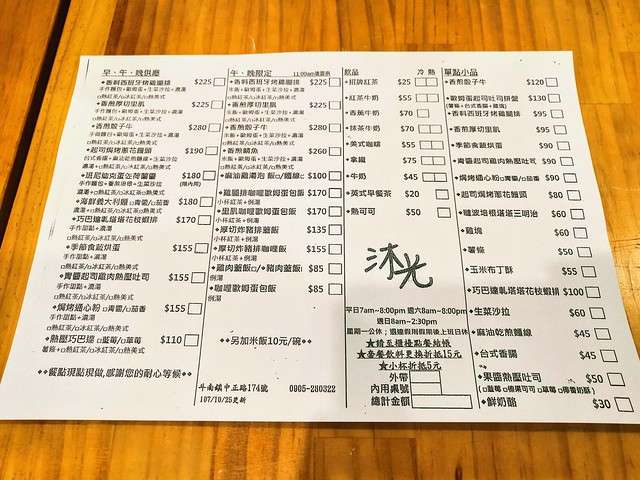 早、午、晚供應
◆香料西班牙烤雞腿排 $225
手作麵包+歐姆蛋+生菜沙拉+濃湯
□熱紅茶/□冰紅茶/□熱美式
◆香煎厚切里肌 $225
手作麵包+歐姆蛋+生菜沙拉+濃湯
□熱紅茶/□冰紅茶/□熱美式
◆香煎骰子牛 $280
手作麵包+歐姆蛋+生菜沙拉+濃湯
□熱紅茶/□冰紅茶/□熱美式
◆起司焗烤蔥花饅頭 $190
台式香腸+麻油乾煎麵線+生菜沙拉
濃湯+□熱紅茶/□冰紅茶/□熱美式
$180
濃湯+□熱紅茶/□冰紅茶/□熱美式
◆海鮮義大利麵 □青醬/□茄醬 $180
手作甜點+濃湯
□熱紅茶/□冰紅茶/□熱美式
◆巧巴達軋塔塔花枝蝦排 $170
手作甜點+濃湯
□熱紅茶/□冰紅茶/□熱美式
◆季節食蔬烘蛋 $155
手作甜點+濃湯
□熱紅茶/□冰紅茶/□熱美式
◆青醬起司雞肉熱壓吐司 $155
手作甜點+濃湯
□熱紅茶/□冰紅茶/□熱美式
◆焗烤通心粉 □青醬/□茄醬 $155
手作甜點+濃湯
□熱紅茶/□冰紅茶/□熱美式
◆熱壓巧巴達 □藍莓/□草莓 $110
薯條+□熱紅茶/□冰紅茶/□熱美式
◆◆餐點現點現做,感謝您的耐心等候◆◆
午、晚限定 11:00am後供應
◆香料西班牙烤雞腿排 $225
米飯+歐姆蛋+生菜沙拉+濃湯
□熱紅茶/□冰紅茶/□熱美式
◆香煎厚切里肌 $225
米飯+歐姆蛋+生菜沙拉+濃湯
□熱紅茶/□冰紅茶/□熱美式
◆香煎骰子牛 $280
米飯+歐姆蛋+生菜沙拉+濃湯
□熱紅茶/□冰紅茶/□熱美式
◆香煎鯖魚 $260
米飯+歐姆蛋+生菜沙拉+濃湯
□熱紅茶/□冰紅茶/□熱美式
◆麻油雞湯泡飯□/麵線□ $100
◆雞腿排咖哩歐姆蛋包飯 $170
小杯紅茶+例湯
◆里肌咖哩歐姆蛋包飯 $170
小杯紅茶+例湯
◆厚切炸豬排飯 $135
小杯紅茶+例湯
◆厚切炸豬排咖哩飯 $155
小杯紅茶+例湯
◆雞肉蓋飯□/◆豬肉蓋飯□ $85
例湯
◆咖哩歐姆蛋包飯 $85
例湯
◆◆另加米飯10元/碗◆◆
斗南鎮中正路174號 0905-280322
107/10/25更新
飲品 冷 熱
◆招牌紅茶 $25
◆紅茶牛奶 $55
◆香蕉牛奶 $70
◆抹茶牛奶 $70
◆美式咖啡 $55
◆拿鐵 $75
◆牛奶 $45
◆英式早餐茶 $20
◆熱可可 $50
沐光
平日7am~8:00pm 週六8am~8:00pm
週日8am~2:30pm
★請至櫃檯點餐結帳
★套餐飲料更換折抵15元
★小杯折抵5元
外帶
內用桌號
總計金額
單點小品
◆香煎骰子牛 $120
◆歐姆蛋起司吐司拼盤 $130
◆香料西班牙烤雞腿排 $95
◆香煎厚切里肌 $95
◆季節食蔬烘蛋 $90
◆青醬起司雞肉熱壓吐司 $90
◆焗烤通心粉 □青醬/□茄醬 $90
◆起司焗烤蔥花饅頭 $80
◆雞塊 $60
◆薯條 $50
◆玉米布丁酥 $55
◆巧巴達軋塔塔花枝蝦排 $100
◆生菜沙拉 $60
◆麻油乾煎麵線 $45
◆台式香腸 $45
◆果醬熱壓吐司 $50
◆鮮奶酪 $30